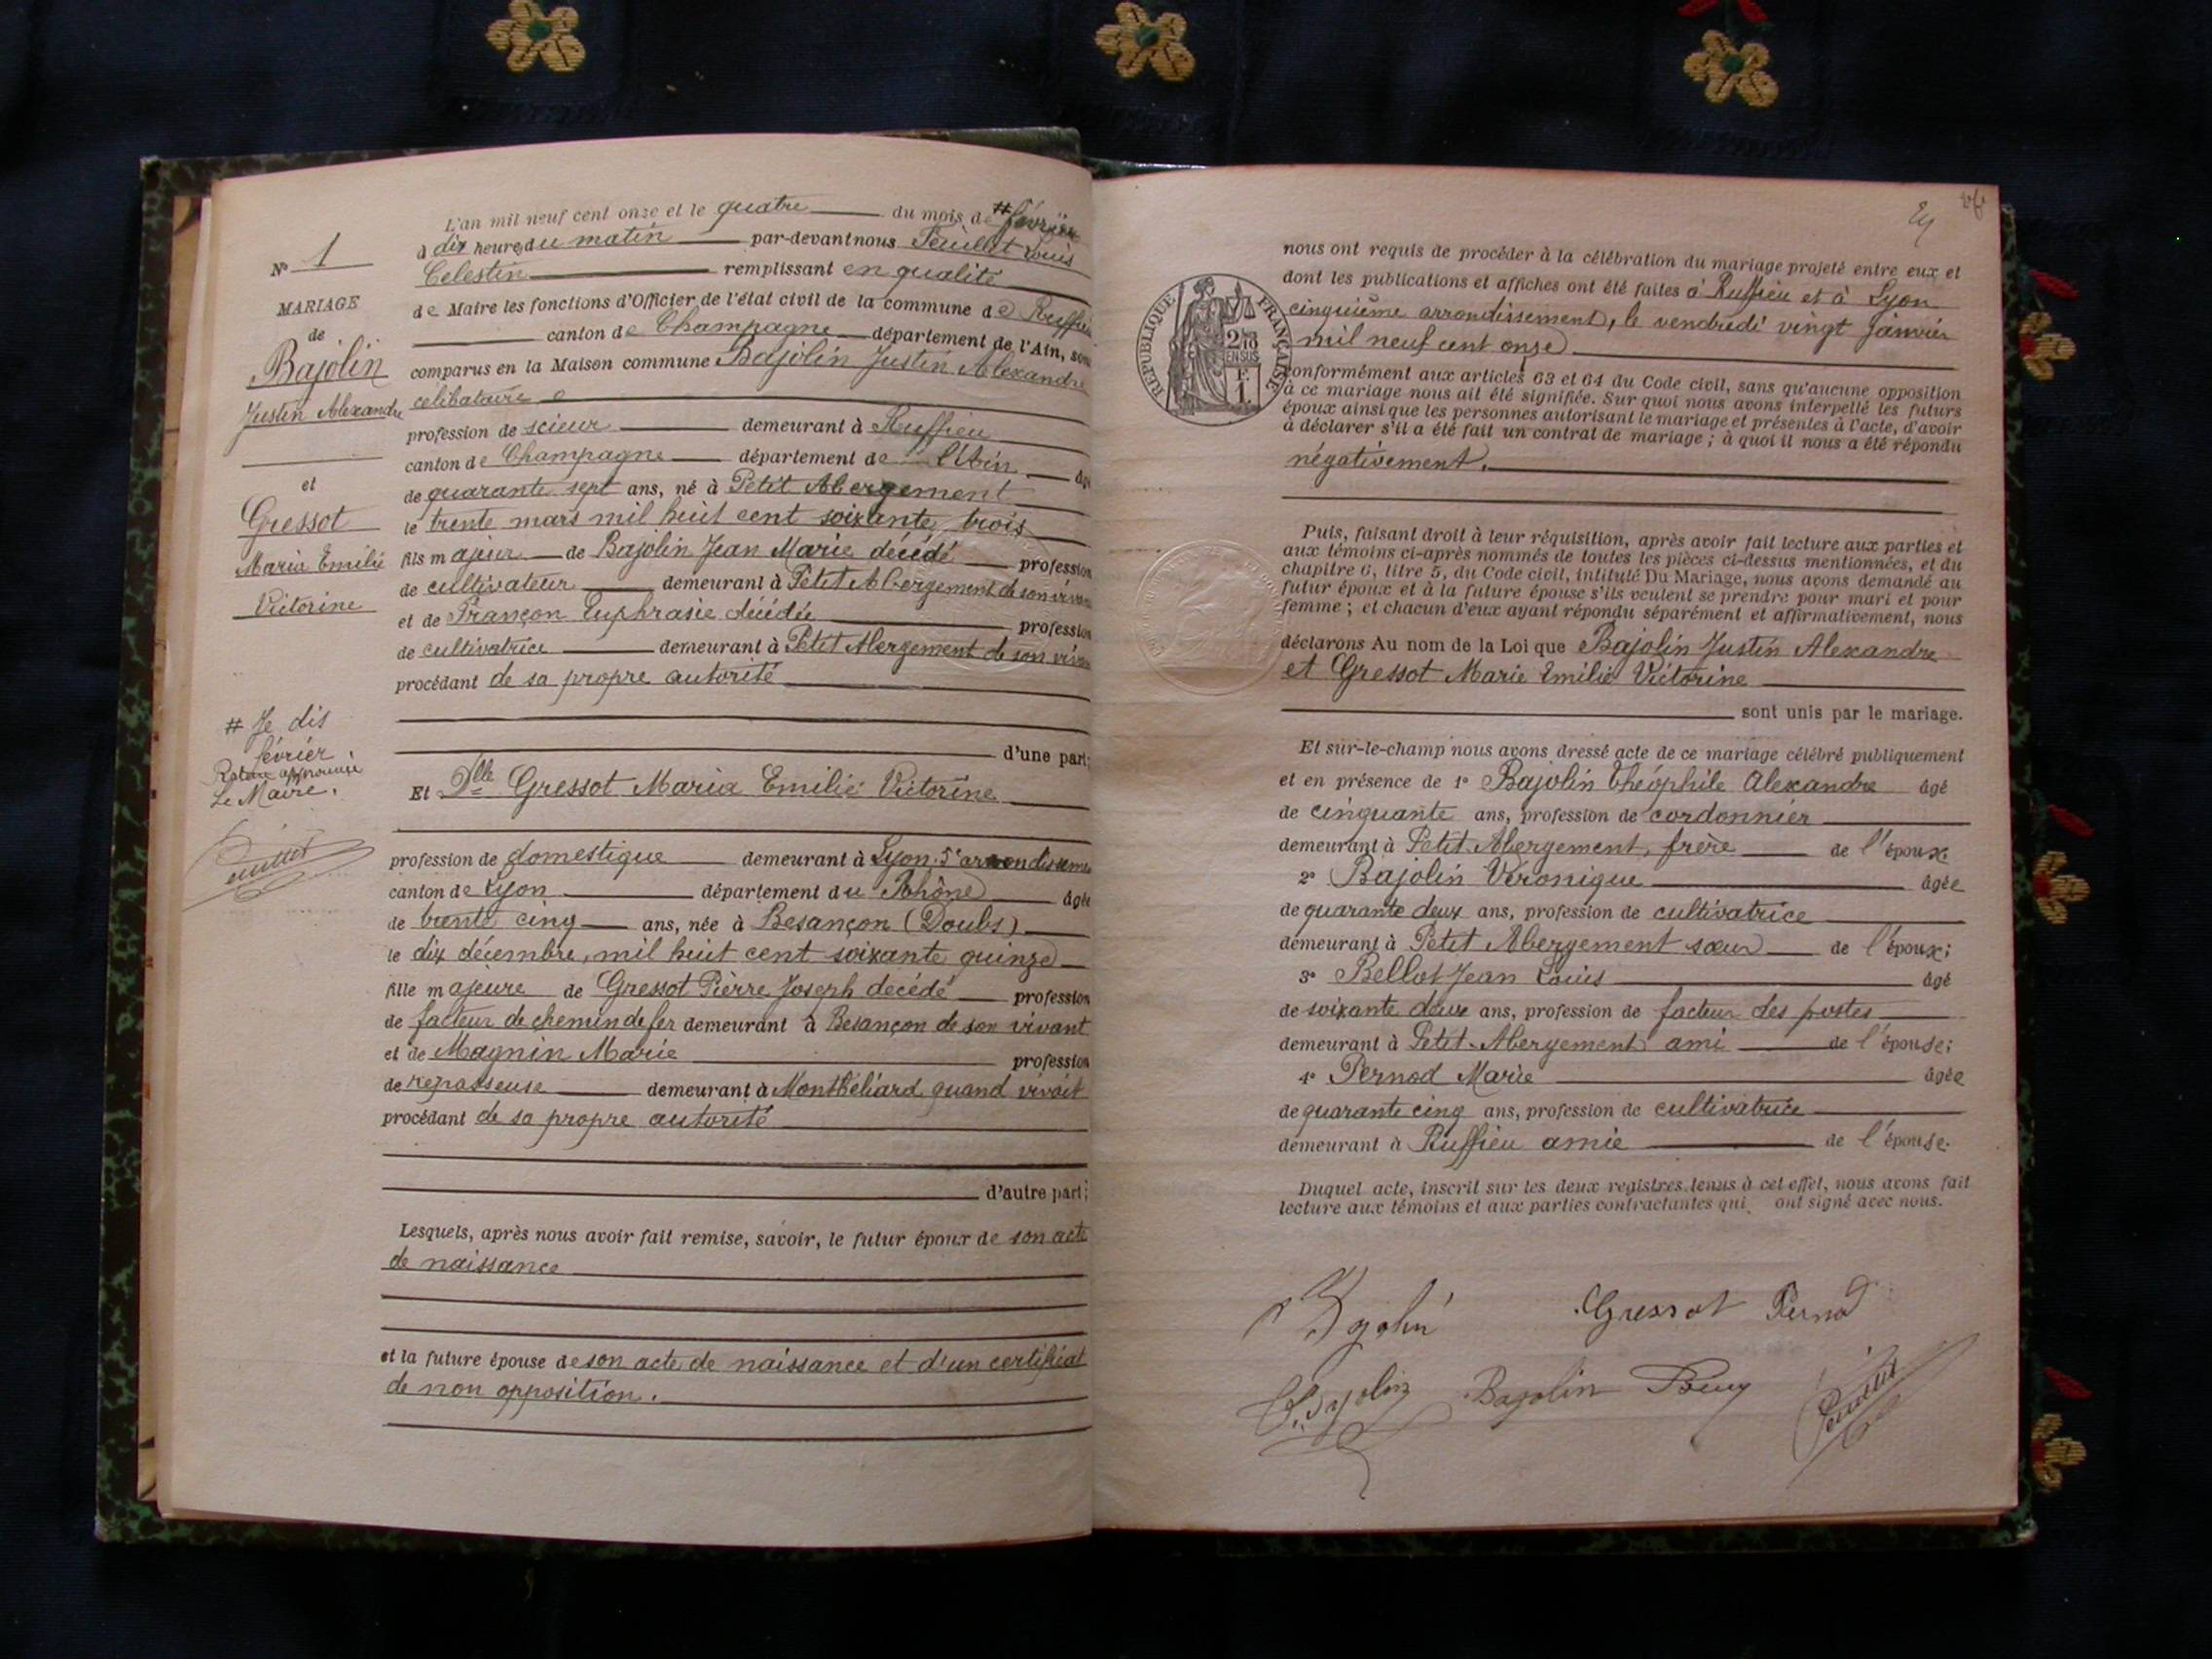 N° 1
MARIAGE
de
Bajolin
Justin Alexandre
et
Gressot
Maria Emilie
Victorine
# Je dis
février.
Rature approuvée
Le Maire.
L'an mil neuf cent onze et le quatre du mois de # février
à dix heures du matin par-devant nous Feuillet Louis
Celestin remplissant en qualité
de Maire les fonctions d'Officier de l'état civil de la commune de Ruffieu
canton de Champagne département de l'Ain, sont
comparus en la Maison commune Bajolin Justin Alexandre
célibataire
profession de scieur demeurant à Ruffieu
canton de Champagne département de l'Ain âgé
de quarante sept ans, né à Petit Abergement
le trente mars mil huit cent soixante trois
fils majeur de Bajolin Jean Marie décédé profession
de cultivateur demeurant à Petit Abergement de son vivant
et de Françon Euphrasie décédée profession
de cultivatrice demeurant à Petit Abergement de son vivant
procédant de sa propre autorité
d'une part;
Et Dlle Gressot Maria Emilie Victorine
profession de domestique demeurant à Lyon 5e arrondissement
canton de Lyon département du Rhône âgée
de trente cinq ans, née à Besançon (Doubs)
le dix décembre, mil huit cent soixante quinze
fille majeure de Gressot Pierre Joseph décédé profession
de facteur de chemin de fer demeurant à Besançon de son vivant
et de Magnin Marie profession
de repasseuse demeurant à Montbéliard quand vivait
procédant de sa propre autorité
d'autre part;
Lesquels, après nous avoir fait remise, savoir, le futur époux de son acte
de naissance
et la future épouse de son acte de naissance et d'un certificat
de non opposition.
RÉPUBLIQUE FRANÇAISE
2/10 EN SUS
F.
1.
nous ont requis de procéder à la célébration du mariage projeté entre eux et
dont les publications et affiches ont été faites à Ruffieu et à Lyon
cinquième arrondissement, le vendredi vingt janvier
mil neuf cent onze
conformément aux articles 63 et 64 du Code civil, sans qu'aucune opposition
à ce mariage nous ait été signifiée. Sur quoi nous avons interpellé les futurs
époux ainsi que les personnes autorisant le mariage et présentes à l'acte, d'avoir
à déclarer s'il a été fait un contrat de mariage ; à quoi il nous a été répondu
négativement.
Puis, faisant droit à leur réquisition, après avoir fait lecture aux parties et
aux témoins ci-après nommés de toutes les pièces ci-dessus mentionnées, et du
chapitre 6, titre 5, du Code civil, intitulé Du Mariage, nous avons demandé au
futur époux et à la future épouse s'ils veulent se prendre pour mari et pour
femme ; et chacun d'eux ayant répondu séparément et affirmativement, nous
déclarons Au nom de la Loi que Bajolin Justin Alexandre
et Gressot Marie Emilie Victorine
sont unis par le mariage.
Et sur-le-champ nous avons dressé acte de ce mariage célébré publiquement
et en présence de 1° Bajolin Théophile Alexandre âgé
de cinquante ans, profession de cordonnier
demeurant à Petit Abergement, frère de l'époux
2° Bajolin Véronique âgée
de quarante deux ans, profession de cultivatrice
demeurant à Petit Abergement sœur de l'époux;
3° Bellot Jean Louis âgé
de soixante deux ans, profession de facteur des postes
demeurant à Petit-Abergement ami de l'épouse;
4° Pernod Marie âgée
de quarante cinq ans, profession de cultivatrice
demeurant à Ruffieu amie de l'épouse.
Duquel acte, inscrit sur les deux registres tenus à cet effet, nous avons fait
lecture aux témoins et aux parties contractantes qui ont signé avec nous.
Bajolin Gressot Pernod
Bajolin Bajolin